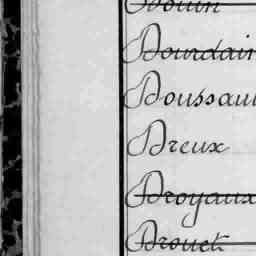 Bourdain
Boussaul
Breux
Broyaux
Brouet